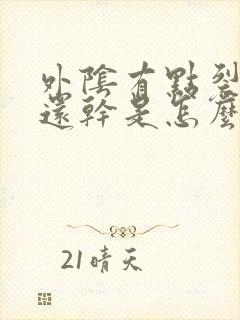 外陰有點裂
還幹是怎麼
21晴天